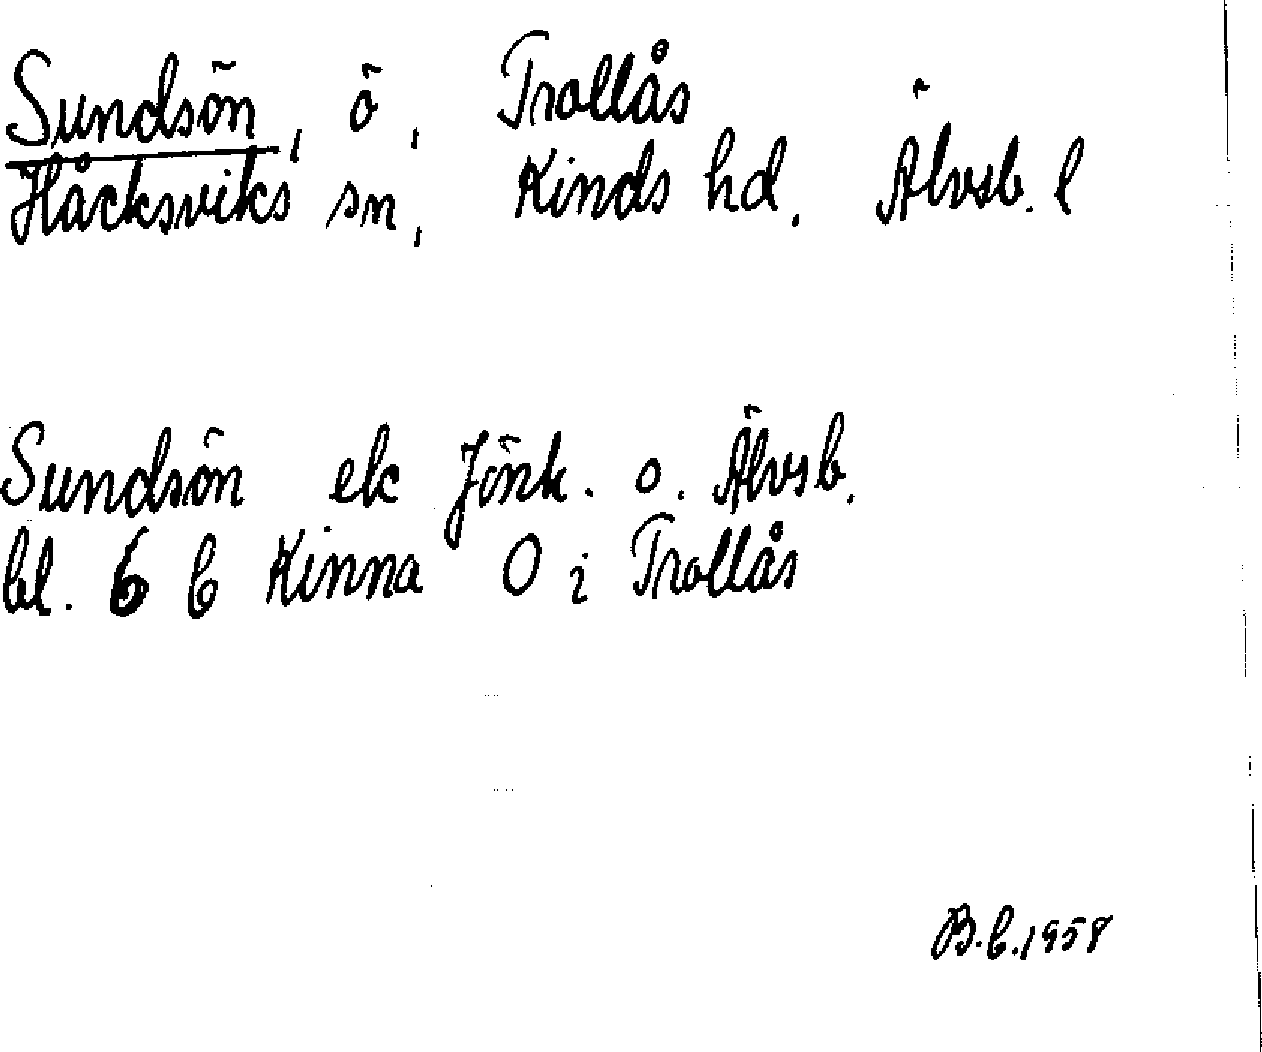 Sundsön, ö, Trollås
Håcksviks sn, Kinds hd. Älvsb. l
Sundsön ek Jönk. o. Älvsb.
bl. 6 b Kinna O i Trollås
B.b.1958